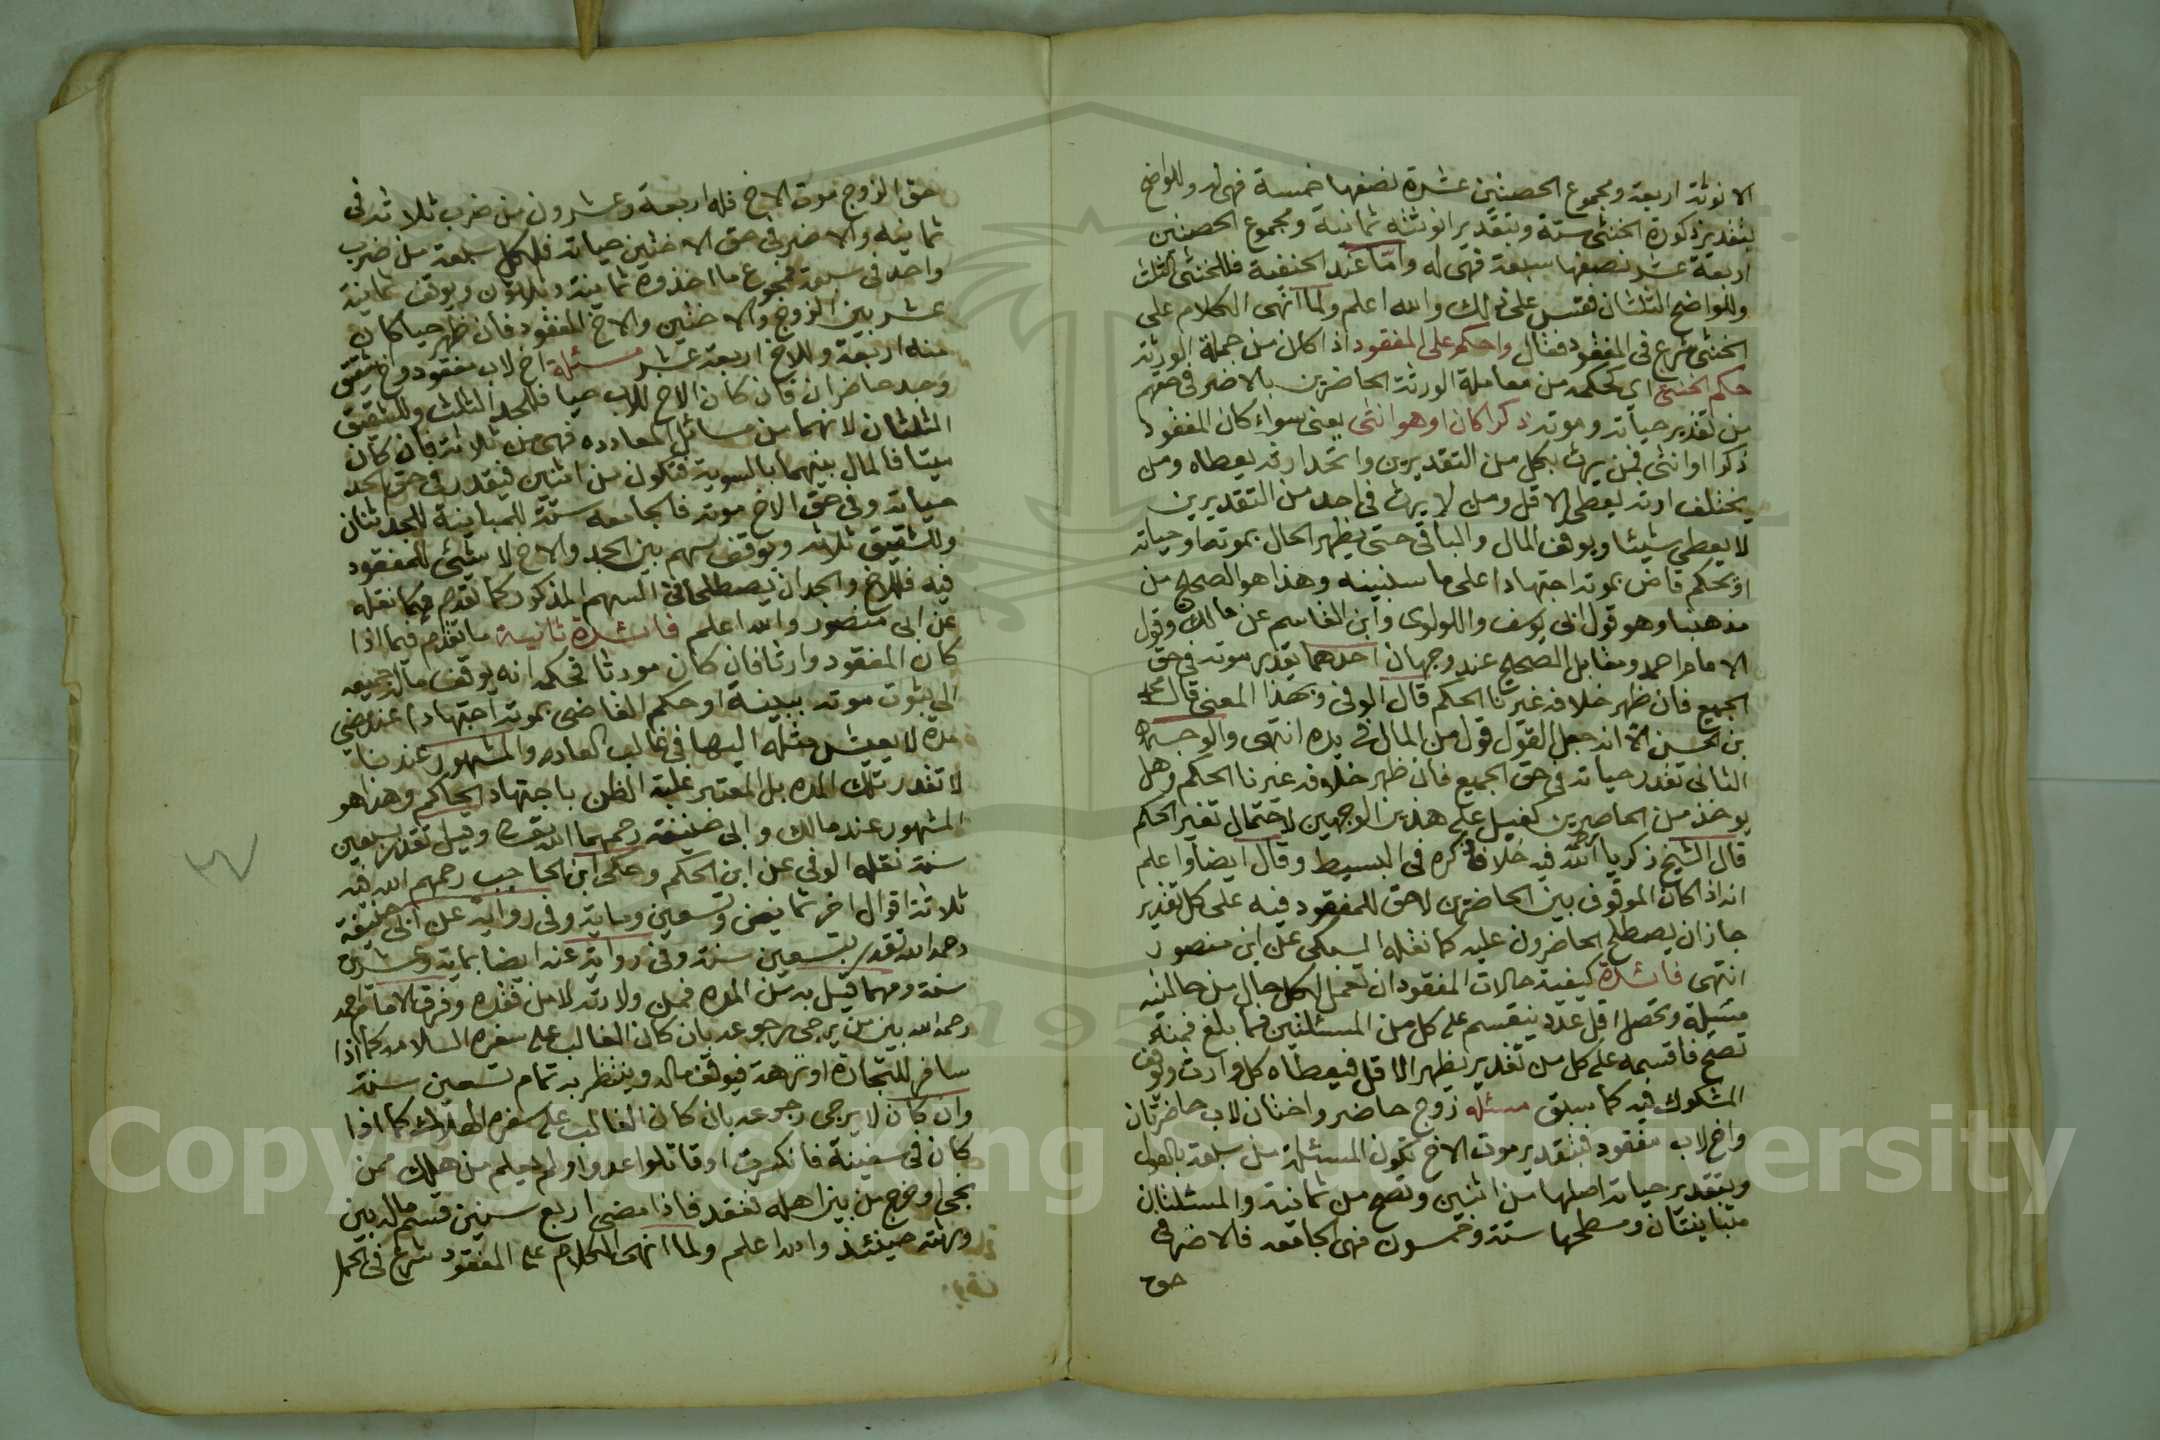 الانوثة اربعة ومجموع الحصتين عشرة نصفها خمسة فهي له وللواضح
بتقدير ذكورة الخنثى ستة وبتقدير انوثته ثمانية ومجموع الحصتين
اربعة عشر نصفها سبعة فهي له واما عند الحنفية فللخنثى الثلث
وللواضح الثلثان فقس على ذلك والله اعلم ولما انهى الكلام على
الخنثى شرع في المفقود فقال واحكم على المفقود اذا كان من جملة الورثة
حكم الخنثى اي كحكمه من معاملة الورثة الحاضرين بالاضر في حقهم
من تقدير حياته وموته ذكرا كان او هو انثى يعني سواء كان المفقود
ذكرا او انثى فمن يرث بكل من التقديرين واتحد ارثه يعطاه ومن
يختلف ارثه يعطى الاقل ومن لا يرث في احد من التقديرين
لا يعطى شيئا ويوقف المال والباقي حتى يظهر الحال بموته او حياته
او يحكم قاض بموته اجتهادا على ما سنبينه وهذا هو الصحيح من
مذهبنا وهو قول ابي يوسف واللولوى وابن القاسم عن مالك وقول
الامام احمد ومقابل الصحيح عندنا وجهان احدهما يقدر موته في حق
الجميع فان ظهر خلافه غيرنا الحكم قال الوني وبهذا المعنى قال محمد
بن الحسن الا انه جعل القول قول من المال في يده انتهى والوجه
الثاني تقدر حياته في حق الجميع فان ظهر خلافه غيرنا الحكم وهل
يوخذ من الحاضرين كفيل على هذين الوجهين لاحتمال تغير الحكم
قال الشيخ زكريا رحمه الله فيه خلاف ذكره في البسيط وقال ايضا واعلم
انه اذا كان الموقوف بين الحاضرين لا حق للمفقود فيه على كل تقدير
جاز ان يصطلح الحاضرون عليه كما نقله السبكي عن ابي منصور
انتهى فائدة كيفية حالات المفقود ان تعمل لكل حال من حالتيه
مسئلة وتحصل اقل عدد ينقسم على كل من المسئلتين فما بلغ فمنه
تصح فاقسمه على كل من تقدير يظهر الاقل فيعطاه كل وارث ويوقف
المشكوك فيه كما سبق مسئلة زوج حاضر واختان لاب حاضرتان
واخ لاب مفقود فبتقدير موت الاخ تكون المسئلة من سبعة بالعول
وبتقدير حياته اصلها من اثنين وتصح من ثمانية والمسئلتان
متباينتان ومسطحها ستة وخمسون فهي الجامعة فالاضر في
حق
حق الزوج موت الاخ فله اربعة وعشرون من ضرب ثلاثة في
ثمانية والاضر في حق الاختين حياته فلكل سبعة من ضرب
واحد في سبعة فمجموع ما اخذوه ثمانية وثلاثون ويوقف ثمانية
عشر بين الزوج والاختين والاخ المفقود فان ظهر حيا كان
منه اربعة وللاخ اربعة عشر مسئلة اخ لاب مفقود واخ شقيق
وجد حاضران فان كان الاخ للاب حيا فللجد الثلث وللشقيق
الثلثان لانهما من مسائل المعاددة فهي من ثلاثة فان كان
ميتا فالمال بينهما بالسوية فتكون من اثنين فيقدر في حق الجد
حياته وفي حق الاخ موته فالجامعة ستة للمباينة للجد ثنان
وللشقيق ثلاثة ويوقف سهم بين الجد والاخ لا شئ للمفقود
فيه فللاخ والجد ان يصطلحا في السهم المذكور كما تقدم فيما نقله
عن ابي منصور والله اعلم فائدة ثانية ما تقدم فيما اذا
كان المفقود وارثا فان كان مورثا فحكمه انه يوقف ماله جميعه
الى ثبوت موته ببينة او حكم القاضي بموته اجتهادا عند مضي
مدة لا يعيش مثله اليها في غالب العادة والمشهور عندنا
لا تقدر تلك المدة بل المعتبر غلبة الظن باجتهاد الحاكم وهذا هو
المشهور عند مالك وابي حنيفة رحمهما الله تعالى وقيل تقدر بسبعين
سنة نقله الوني عن ابن الحكم وحكى ابن الحاجب رحمهم الله فيه
ثلاثة اقوال اخر ثمانين وتسعين ومائة وفي رواية عن ابي حنيفة
رحمه الله تقدر بتسعين سنة وفي رواية عنه ايضا بمائة وعشرين
سنة ومهما قيل به من المدة فمن ولادته لا من فقده وفرق الامام احمد
رحمه الله بين من يرجى رجوعه بان كان الغالب على سفره السلامة كما اذا
سافر للتجارة او نزهة فيوقف ماله وينتظر به تمام تسعين سنة
وان كان لا يرجى رجوعه بان كان الغالب على سفره الهلاك كما اذا
كان في سفينة فانكسرت او قاتلوا عدوا ولم يعلم من هلك ممن
نجى او خرج من بين اهله ففقد فاذا مضى اربع سنين قسم ماله بين
ورثته حينئذ والله اعلم ولما انهى الكلام على المفقود شرع في الحمل
Copyright © King Saud University